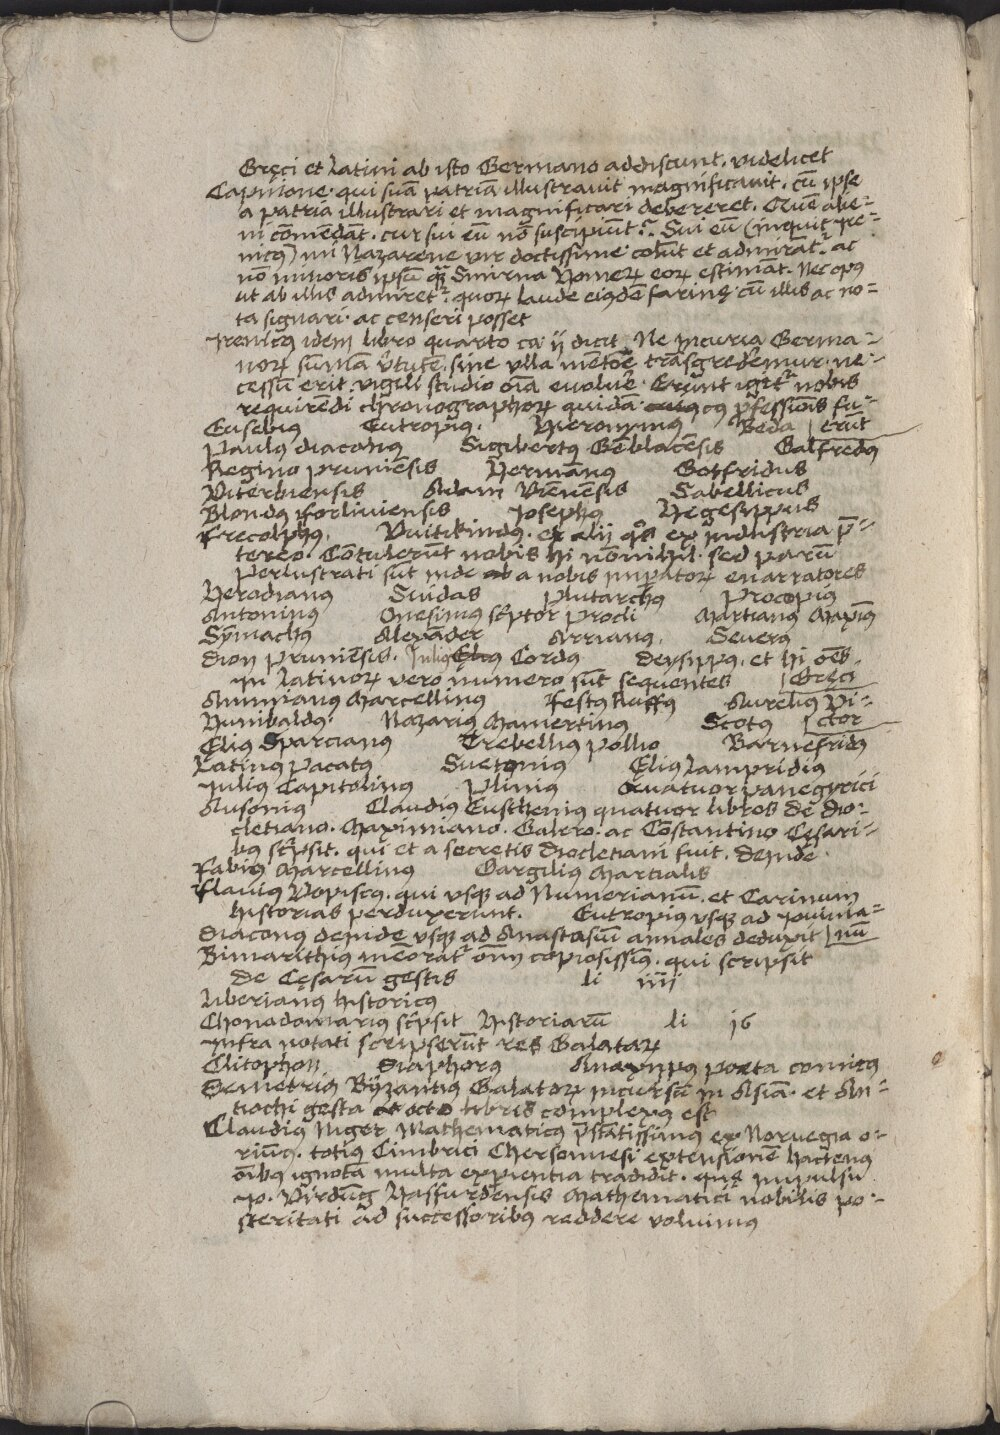 Gręci et Latini ab isto Germano addiscunt. videlicet
Capnione. qui suā patriā illustravit magnificavit. cū ipse
a patria illustrari et magnificari debereret. Quē alie=
ni cōmēdāt. cur sui eū nō suscipiūt. Sui eū (inquit Ire=
nicꝰ) mi Nazarene vir doctissime colūt et admirāt᷑. ac
nō minoris ipsū qꝫ Smirna Homerū eorꝝ estimāt. Nec opꝰ
ut ab illis admiret᷑. quorꝝ laude eiꝰdē farinę. cū illis ac no=
ta signari. ac censeri posset
Irenicꝰ idem libro quarto ca ij dicit Ne incuria Germa=
norꝝ sūmā v̄tutē. sine ulla mētōe trāsgrederemur. ne=
cessū erit. vigili studio oīa evolvē. Erūnt igit᷑ nobis
requirēdi chronographorꝝ quidā. cꝰ p̄fessiōnis fu=
Eusebius Eutropiꝰ. Hieronymus Beda [erūt
Paulꝰ diaconꝰ Sigibertꝰ Gēblacēsis Galfredꝰ
Regino pruniēsis Hermānus Gotfridus
Viterbiensis Adam Brēmēsis Sabellicus
Blondꝰ Forliviensis Josephꝰ Hegesippus
Frecolphꝰ. Vuitikindꝰ. et alij qͦs ex industria p̄=
tereo. Cōtulerūt nobis hi nōnihil. sed parū
Perlustrati sūt inde a nobis imperatorꝝ enarratores
Herodianus Suidas Plutarchꝰ Procopiꝰ
Antoninꝰ Onesimus sc̄ptor Prodi Martianꝰ Maximꝰ
Sȳmachꝰ Alexāder Arrianꝰ. Severꝰ
dion pruniēsis. Juliꝰ Cordꝰ dexippꝰ. et hi oēs
In Latinorꝝ vero numero sūt sequentes [Gręci
Ammianus Marcellinꝰ Festꝰ Ruffꝰ Aureliꝰ Vi=
Hunibaldꝰ. Nazariꝰ Mamertinꝰ Scotꝰ [ctor
Eliꝰ Sparcianꝰ Trebelliꝰ pollio Barnefridꝰ
Latinꝰ Pacatꝰ Suetoniꝰ Eliꝰ Lampridiꝰ
Juliꝰ Capitolinꝰ Pliniꝰ Quatuor panegyrici
Ausoniꝰ Claudiꝰ Eustheniꝰ quatuor libros de dio=
cletiano. Maximiano. Galero. ac Cōstantino Cęsari=
bꝰ sc̄psit. qui et a secretis diocletiani fuit. deinde
Fabiꝰ Marcellinꝰ Gargiliꝰ Martialis
Flaviꝰ Vopiscꝰ. qui usqꝫ ad Numerianū. et Carinum
historias perduxerunt. Eutropiꝰ usqꝫ ad Iovinia=
diaconꝰ deinde usqꝫ ad Anastasiū annales deduxit [nū
Bimarithiꝰ mēorat᷑ oīm copiosissimꝰ. qui scripsit
de Cęsarū gestis li iiij
Liberianꝰ historicꝰ
Chonadomariꝰ sc̄psit Historiarū li 16
Infra notati scripserūt res Galatarꝝ
Clitophon Diaphorꝰ Anaxippꝰ poeta comicꝰ
Demetriꝰ Byzantiꝰ Galatorꝝ incursū in Asiā. et An=
tiochi gesta octo libris complexꝰ est
Claudiꝰ Niger Mathematicꝰ p̄stātissimꝰ ex Norvegia o=
riūdꝰ. totiꝰ Cimbrici Chersonnesi extensionē hactenꝰ
oībꝰ ignotā multa experientia tradidit. quę impulsu
Io. Virdūg Hasfurdensis Mathematici nobilis po=
steritati ac successoribꝰ reddere voluimꝰ